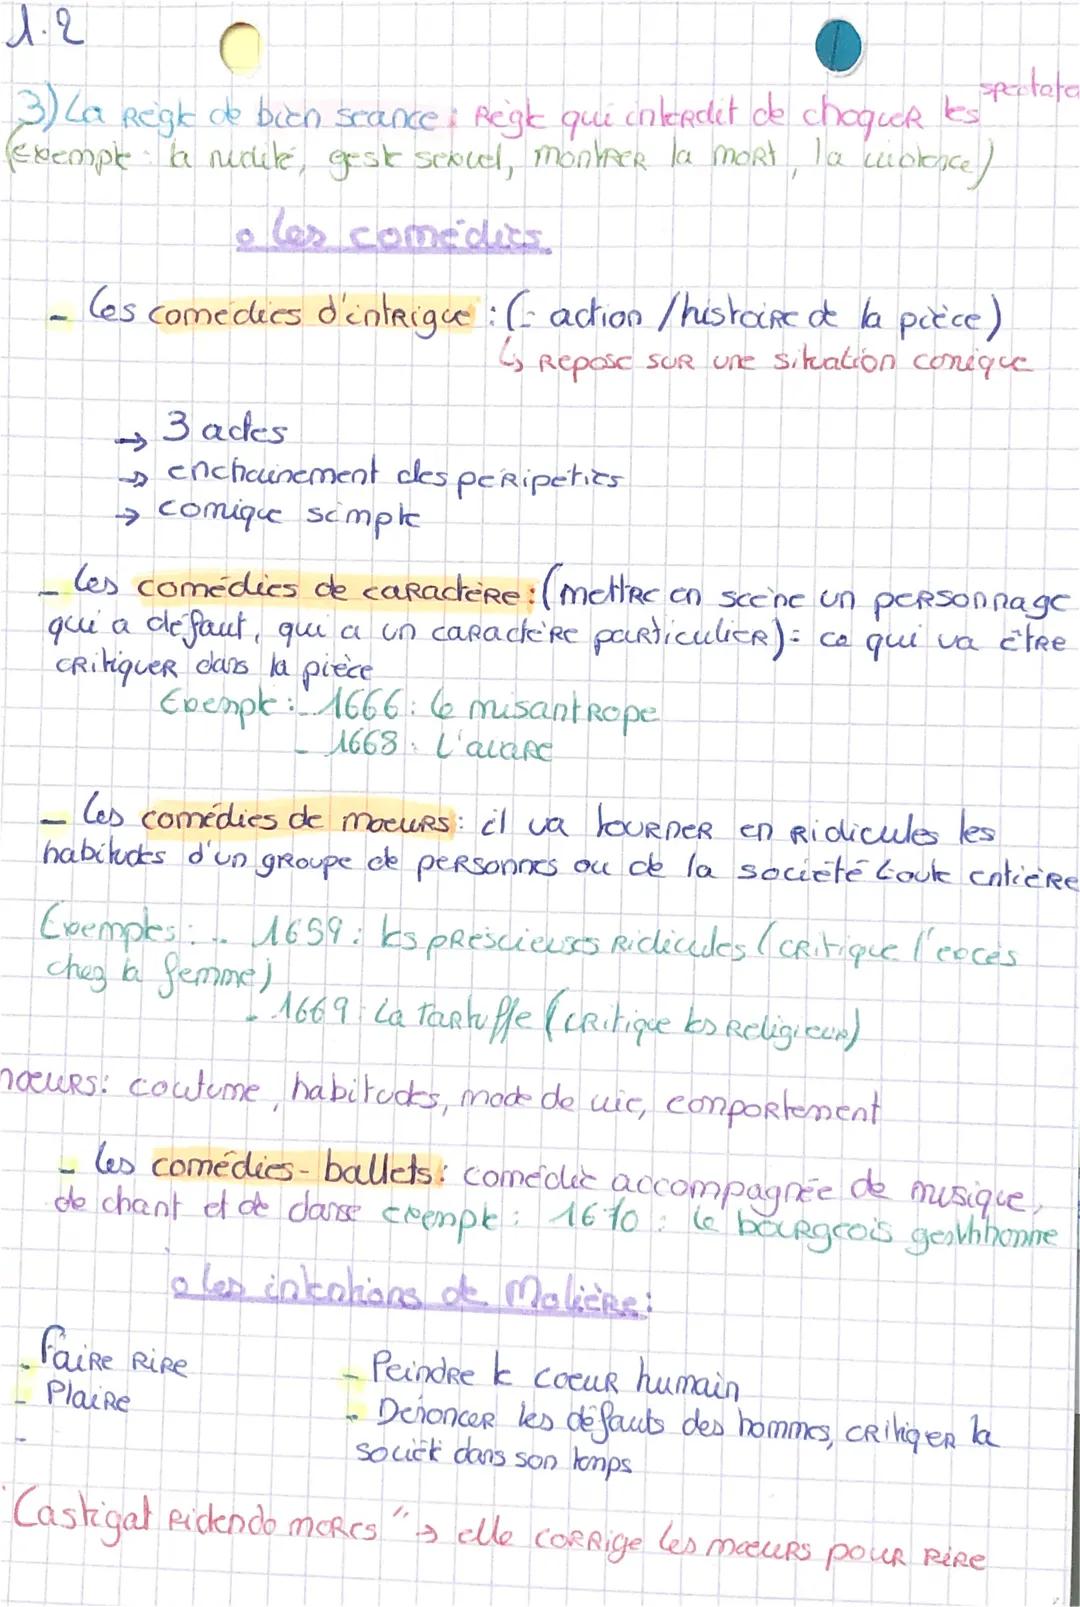 1.2
spectate
3) La Règle de bien seance : Règle qui interdit de choquer les
(exemple : la nudité, geste sexuel, montrer la mort, la violence)
• les comédies.
- les comédies d'intrigue : (= action / histoire de la pièce)
↳ Repose sur une situation comique
→ 3 actes
→ enchainement des péripéties
→ comique simple
- les comédies de caractère : (mettre en scène un personnage
qui a defaut, qui a un caractère particulier) = ce qui va être
critiquer dans la pièce
Exemple : - 1666 : le misantrope
- 1668 : L'avare
- les comédies de moeurs : il va tourner en ridicules les
habitudes d'un groupe de personnes ou de la société toute entière
Exemples : - 1659 : les prescieuses Ridicules (critique l'excès
chez la femme)
- 1669 : La Tartuffe (critique les religieux)
moeurs : coutume, habitudes, mode de vie, comportement
- les comédies-ballets : comédie accompagnée de musique,
de chant et de danse exemple : 1670 : le bourgeois gentilhomme
• les intentions de Molière :
- faire rire
- Peindre le coeur humain
- Plaire
- Dénoncer les défauts des hommes, critiquer la
-
société dans son temps
"Castigat ridendo mores" → elle corrige les moeurs pour rire